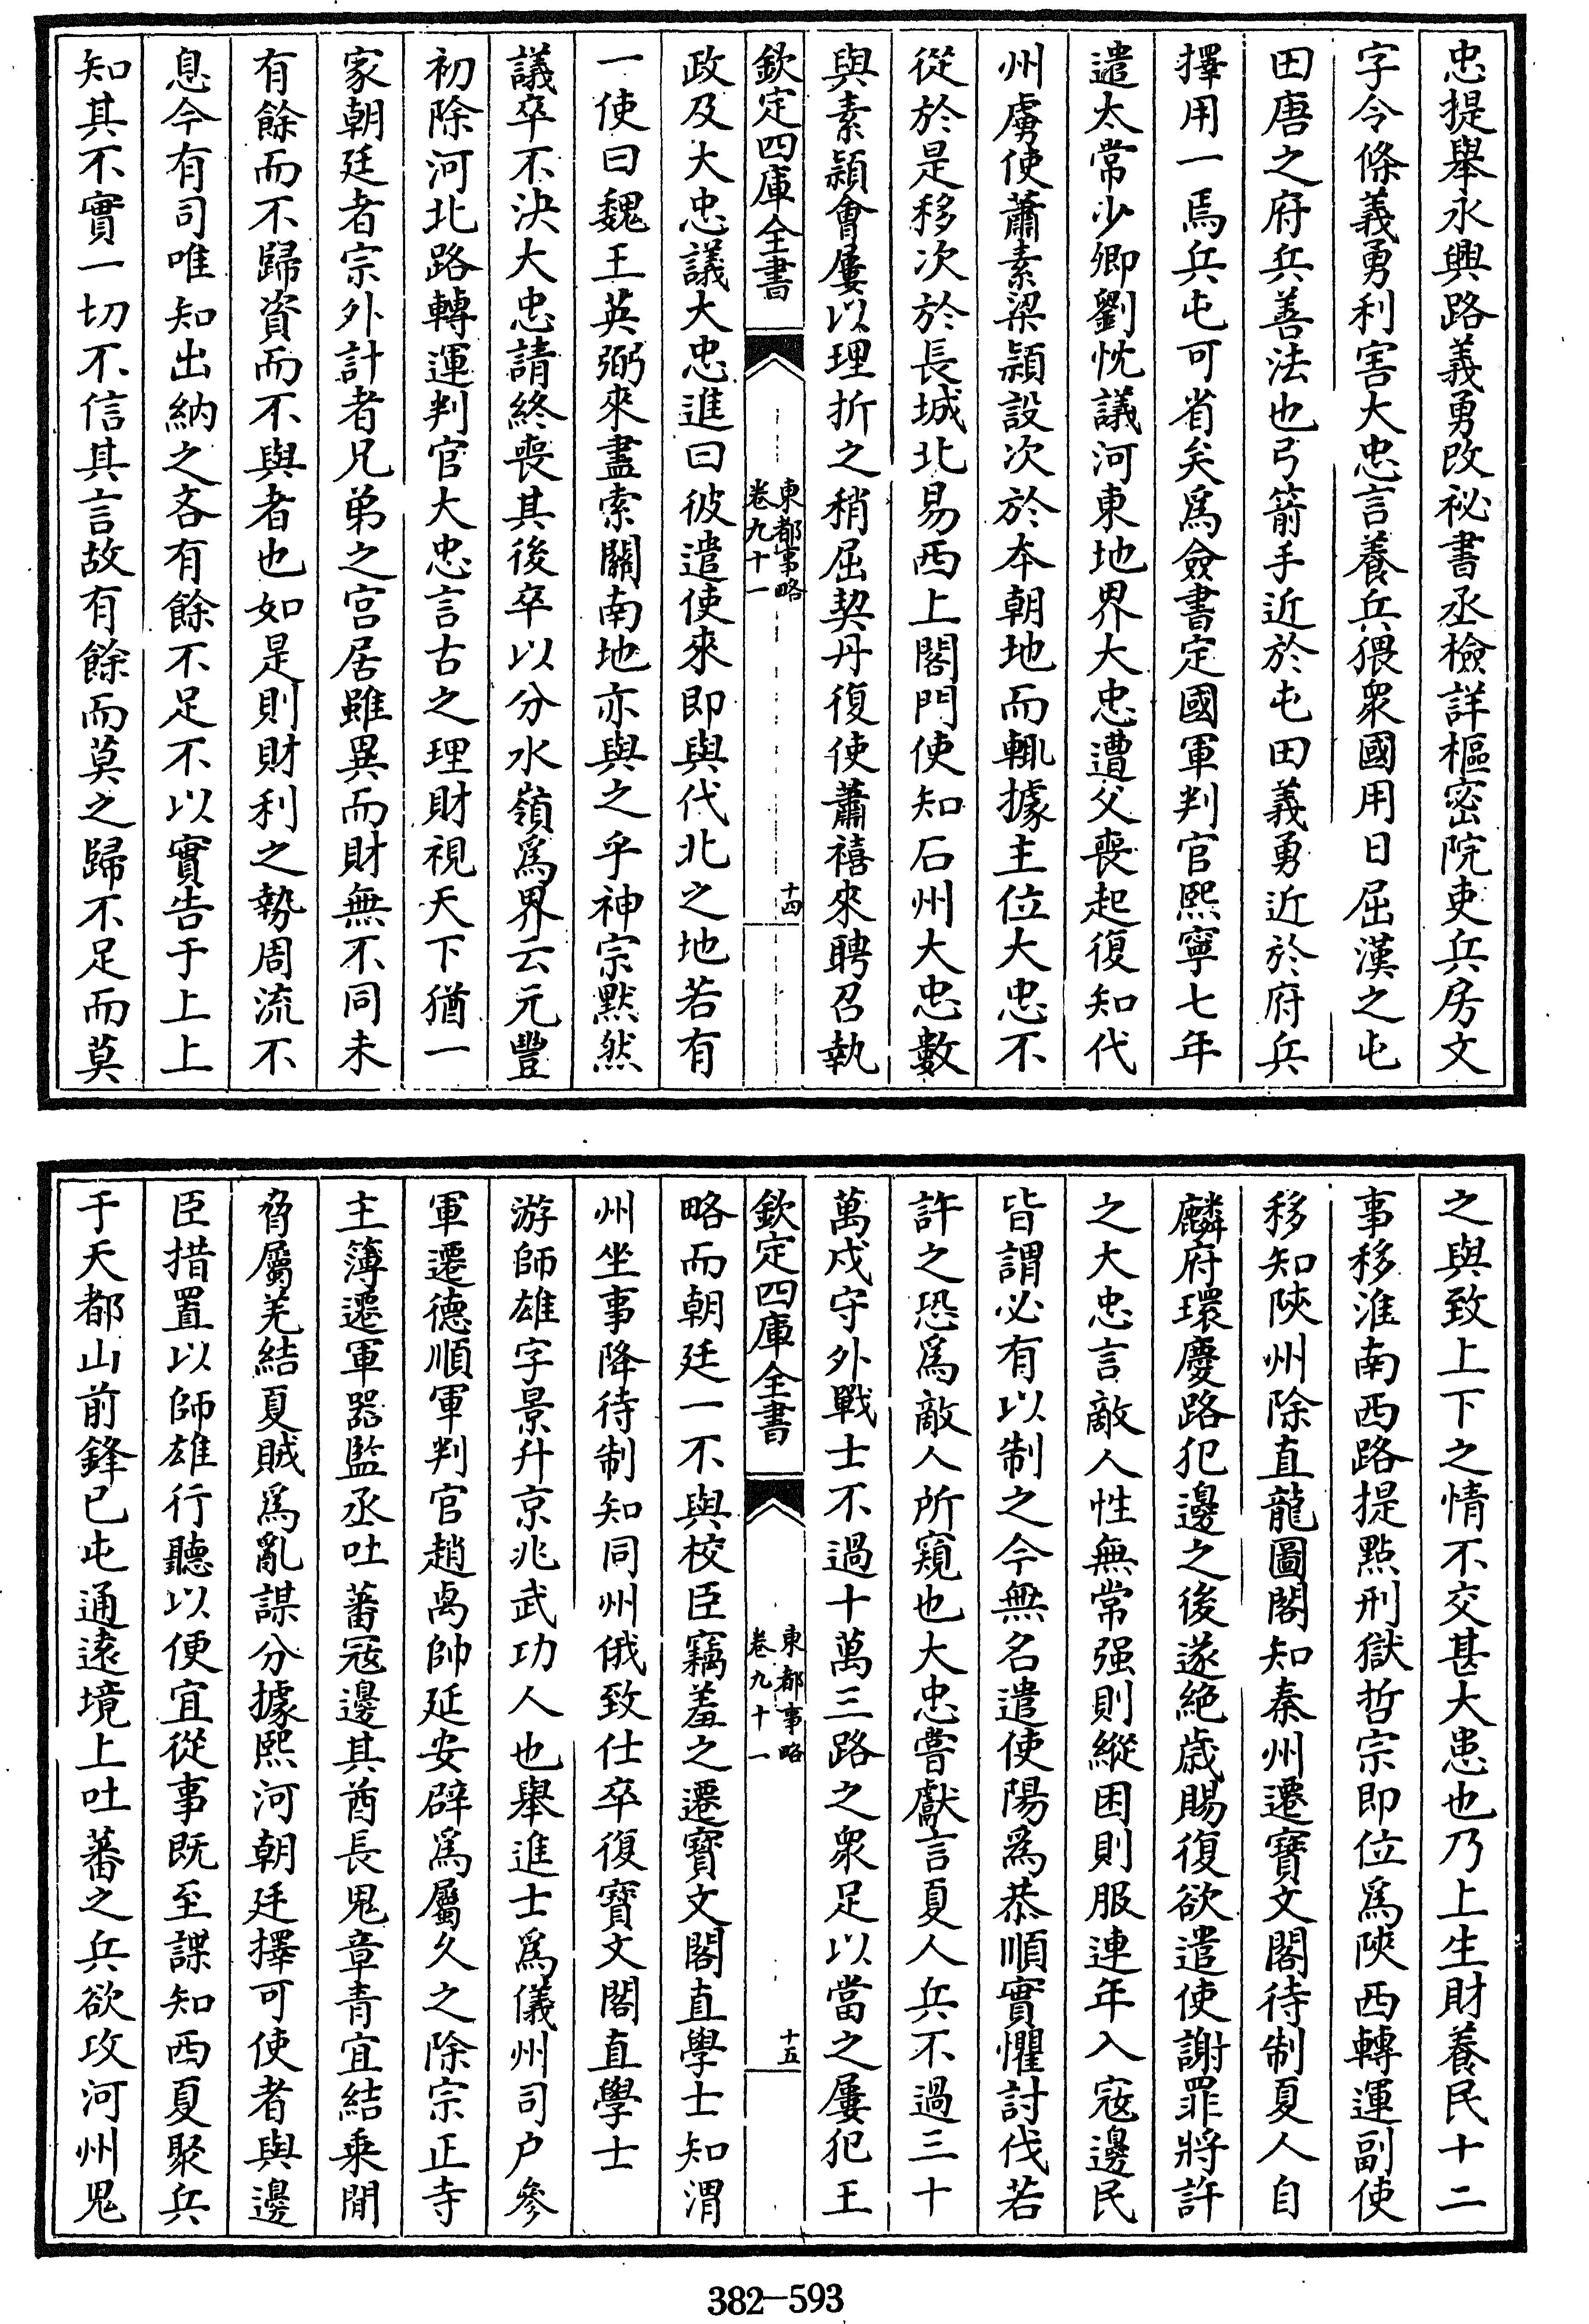 忠提舉永興路義勇改祕書丞檢詳樞密院吏兵房文
字令條義勇利害大忠言養兵猥衆國用日屈漢之屯
田唐之府兵善法也弓箭手近於屯田義勇近於府兵
擇用一焉兵屯可省矣爲僉書定國軍判官熙寧七年
遣太常少卿劉忱議河東地界大忠遭父喪起復知代
州虜使蕭素梁潁設次於本朝地而輒據主位大忠不
從於是移次於長城北易西上閤門使知石州大忠數
與素潁會屢以理折之稍屈契丹復使蕭禧來聘召執
欽定四庫全書
東都事略
卷九十一
十四
政及大忠議大忠進曰彼遣使來即與代北之地若有
一使曰魏王英弼來盡索關南地亦與之乎神宗黙然
議卒不決大忠請終喪其後卒以分水嶺爲界云元豐
初除河北路轉運判官大忠言古之理財視天下猶一
家朝廷者宗外計者兄弟之宮居雖異而財無不同未
有餘而不歸資而不與者也如是則財利之勢周流不
息今有司唯知出納之吝有餘不足不以實告于上上
知其不實一切不信其言故有餘而莫之歸不足而莫
之與致上下之情不交甚大患也乃上生財養民十二
事移淮南西路提點刑獄哲宗即位爲陝西轉運副使
移知陝州除直龍圖閣知秦州遷寶文閣待制夏人自
麟府環慶路犯邊之後遂絶歲賜復欲遣使謝罪將許
之大忠言敵人性無常强則縱困則服連年入寇邊民
皆謂必有以制之今無名遣使陽爲恭順實懼討伐若
許之恐爲敵人所窺也大忠嘗獻言夏人兵不過三十
萬戍守外戰士不過十萬三路之衆足以當之屢犯王
欽定四庫全書
東都事略
卷九十一
十五
略而朝廷一不與校臣竊羞之遷寶文閣直學士知渭
州坐事降待制知同州俄致仕卒復寶文閣直學士
游師雄字景升京兆武功人也舉進士爲儀州司户參
軍遷德順軍判官趙卨帥延安辟爲屬久之除宗正寺
主簿遷軍器監丞吐蕃寇邊其酋長鬼章青宜結乘閒
脅屬羌結夏賊爲亂謀分據熙河朝廷擇可使者與邊
臣措置以師雄行聽以便宜從事既至諜知西夏聚兵
于天都山前鋒已屯通遠境上吐蕃之兵欲攻河州鬼
382—593